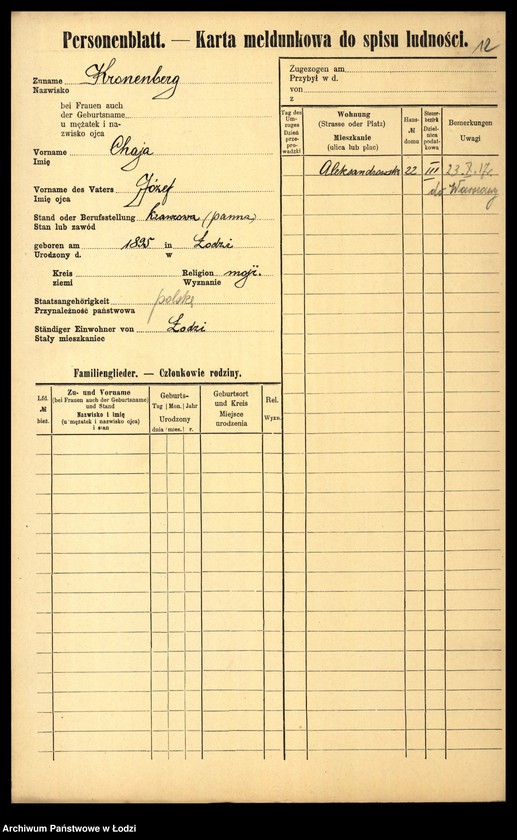 Personenblatt. — Karta meldunkowa do spisu ludności.
12
Zuname Kronenberg
Nazwisko
bei Frauen auch
der Geburtsname
u mężatek i na-
zwisko ojca
Vorname Chaja
Imię
Vorname des Vaters Józef
Imię ojca
Stand oder Berufsstellung krawcowa (panna)
Stan lub zawód
geboren am 1895 in Łodzi
Urodzony d. w
Kreis Religion mojż.
ziemi Wyznanie
Staatsangehörigkeit polska
Przynależność państwowa
Ständiger Einwohner von Łodzi
Stały mieszkaniec
Familienglieder. — Członkowie rodziny.
Lfd.
№
bież.
Zu- und Vorname
(bei Frauen auch der Geburtsname)
und Stand
Nazwisko i imię
(u mężatek i nazwisko ojca)
i stan
Geburts-
Tag Mon. Jahr
Urodzony
dnia mies. r.
Geburtsort
und Kreis
Miejsce
urodzenia
Rel.
Wyzn.
Zugezogen am
Przybył w d.
von
z
Tag des
Um-
zuges
Dzień
prze-
prowadzki
Wohnung
(Strasse oder Platz)
Mieszkanie
(ulica lub plac)
Haus-
№
domu
Steuer-
bezirk
Dziel-
nica
podat-
kowa
Bemerkungen
Uwagi
Aleksandrowska 22 III 23.X.17r.
do Warszawy
Archiwum Państwowe w Łodzi